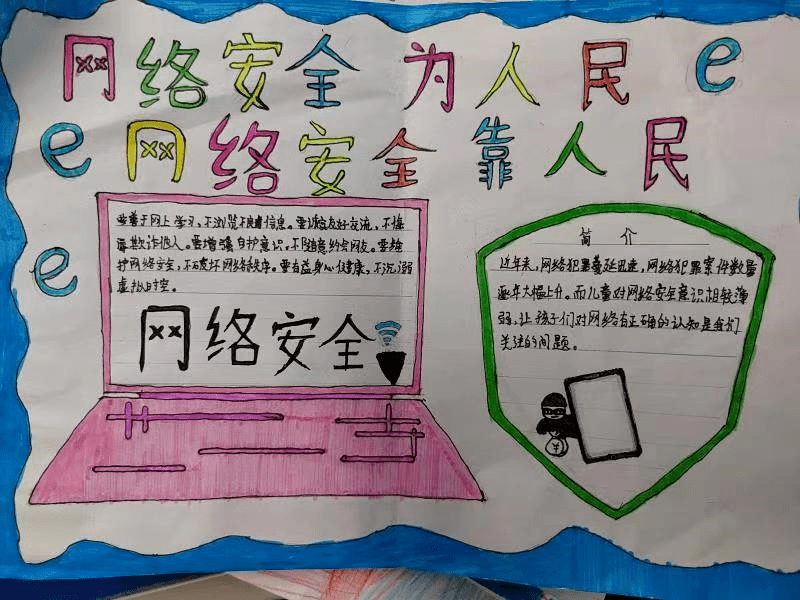 网络安全为人民 e
e 网络安全靠人民
e
要善于网上学习，不浏览不良信息。要诚实友好交流，不侮
辱欺诈他人。要增强自护意识，不随意约会网友。要维
护网络安全，不破坏网络秩序。要有益身心健康，不沉溺
虚拟时空。
网络安全
简介
近年来，网络犯罪蔓延迅速，网络犯罪案件数量
逐年大幅上升。而儿童对网络安全意识相较薄
弱，让孩子们对网络有正确的认知是我们
关注的问题。
¥